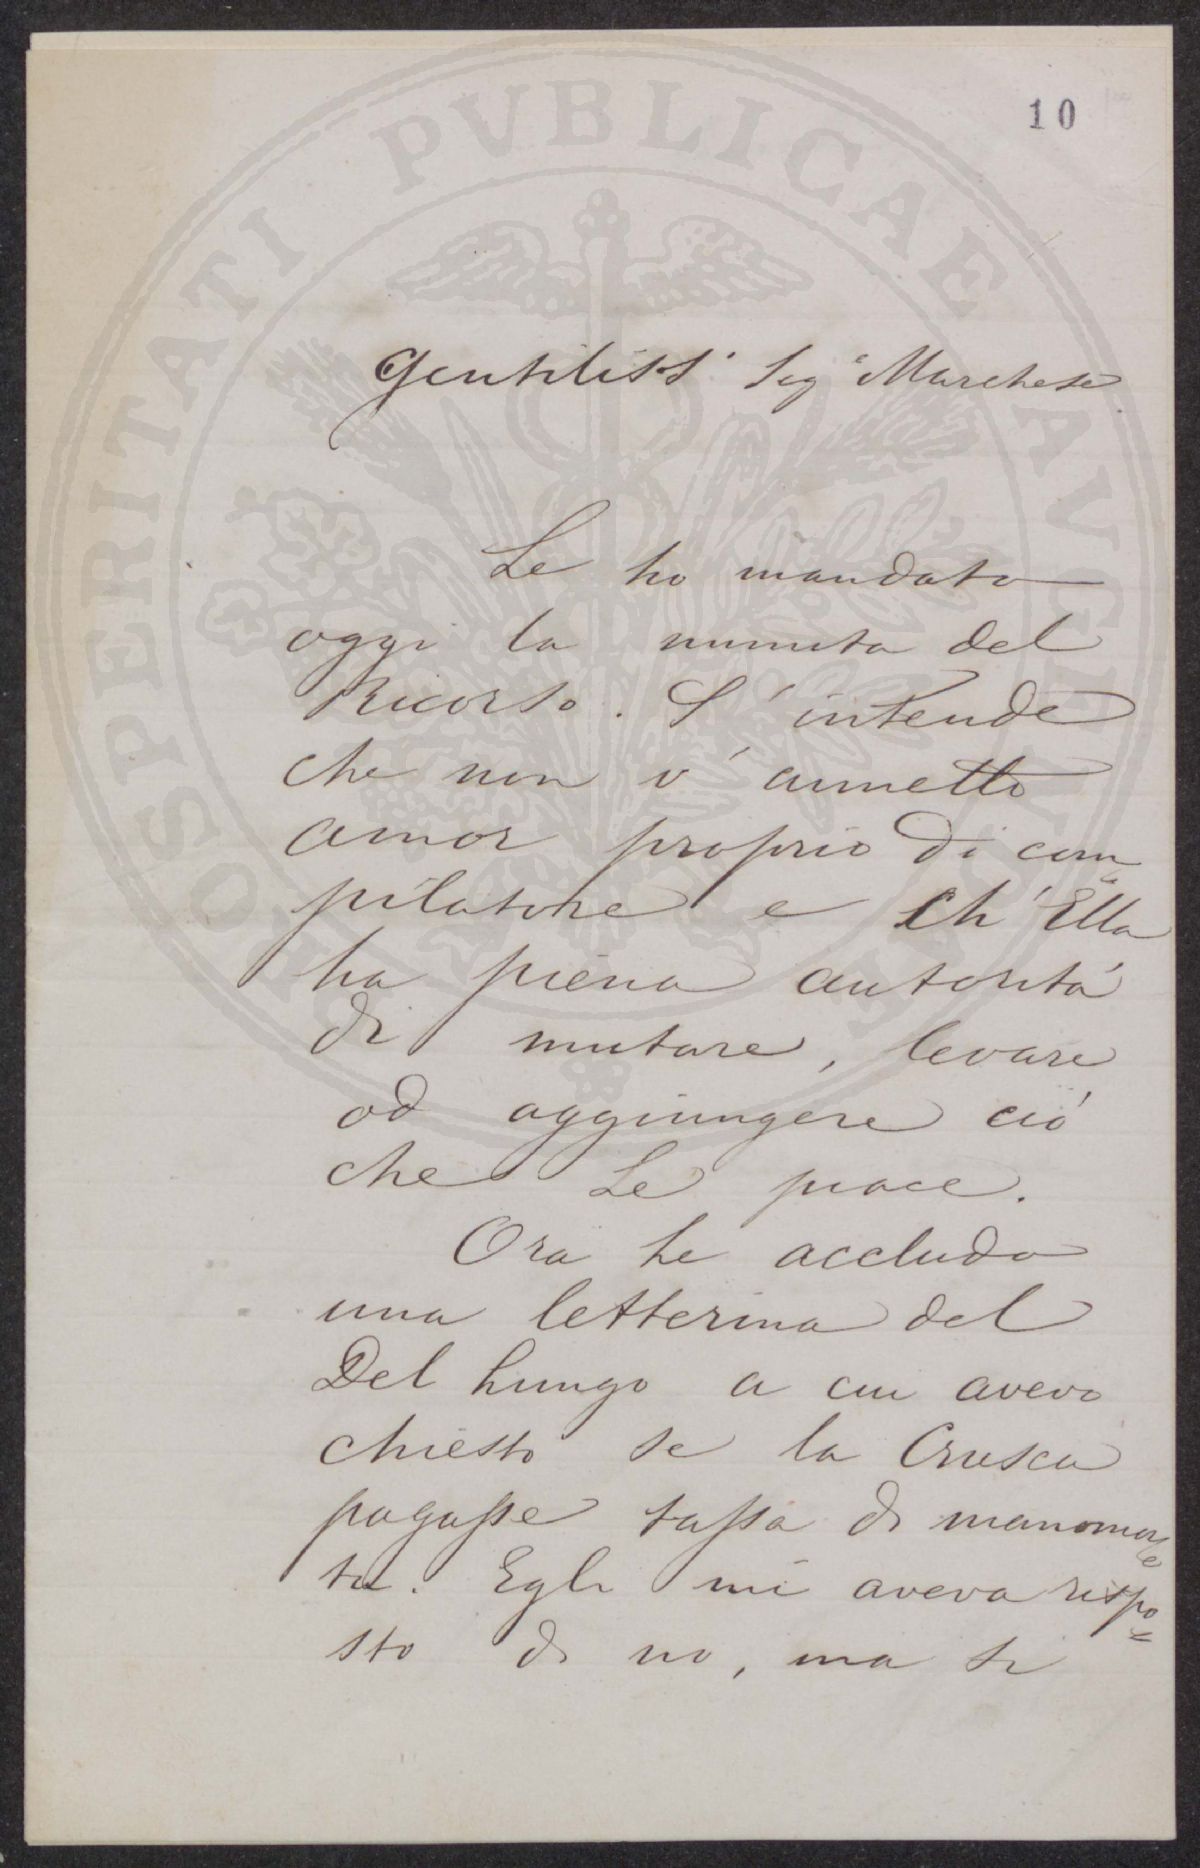 10
Gentiliss. Sig. Marchese
Le ho mandato
oggi la minuta del
Ricorso. S'intende
che non v'annetto
amor proprio di com=
pilatore e ch'Ella
ha piena autorità
di mutare, levare
od aggiungere ciò
che Le piace.
Ora Le accludo
una letterina del
Del Lungo a cui avevo
chiesto se la Crusca
pagasse tassa di manomor=
ta. Egli mi aveva rispo=
sto di no, ma si
PROSPERITATI PVBLICAE AVGENDAE